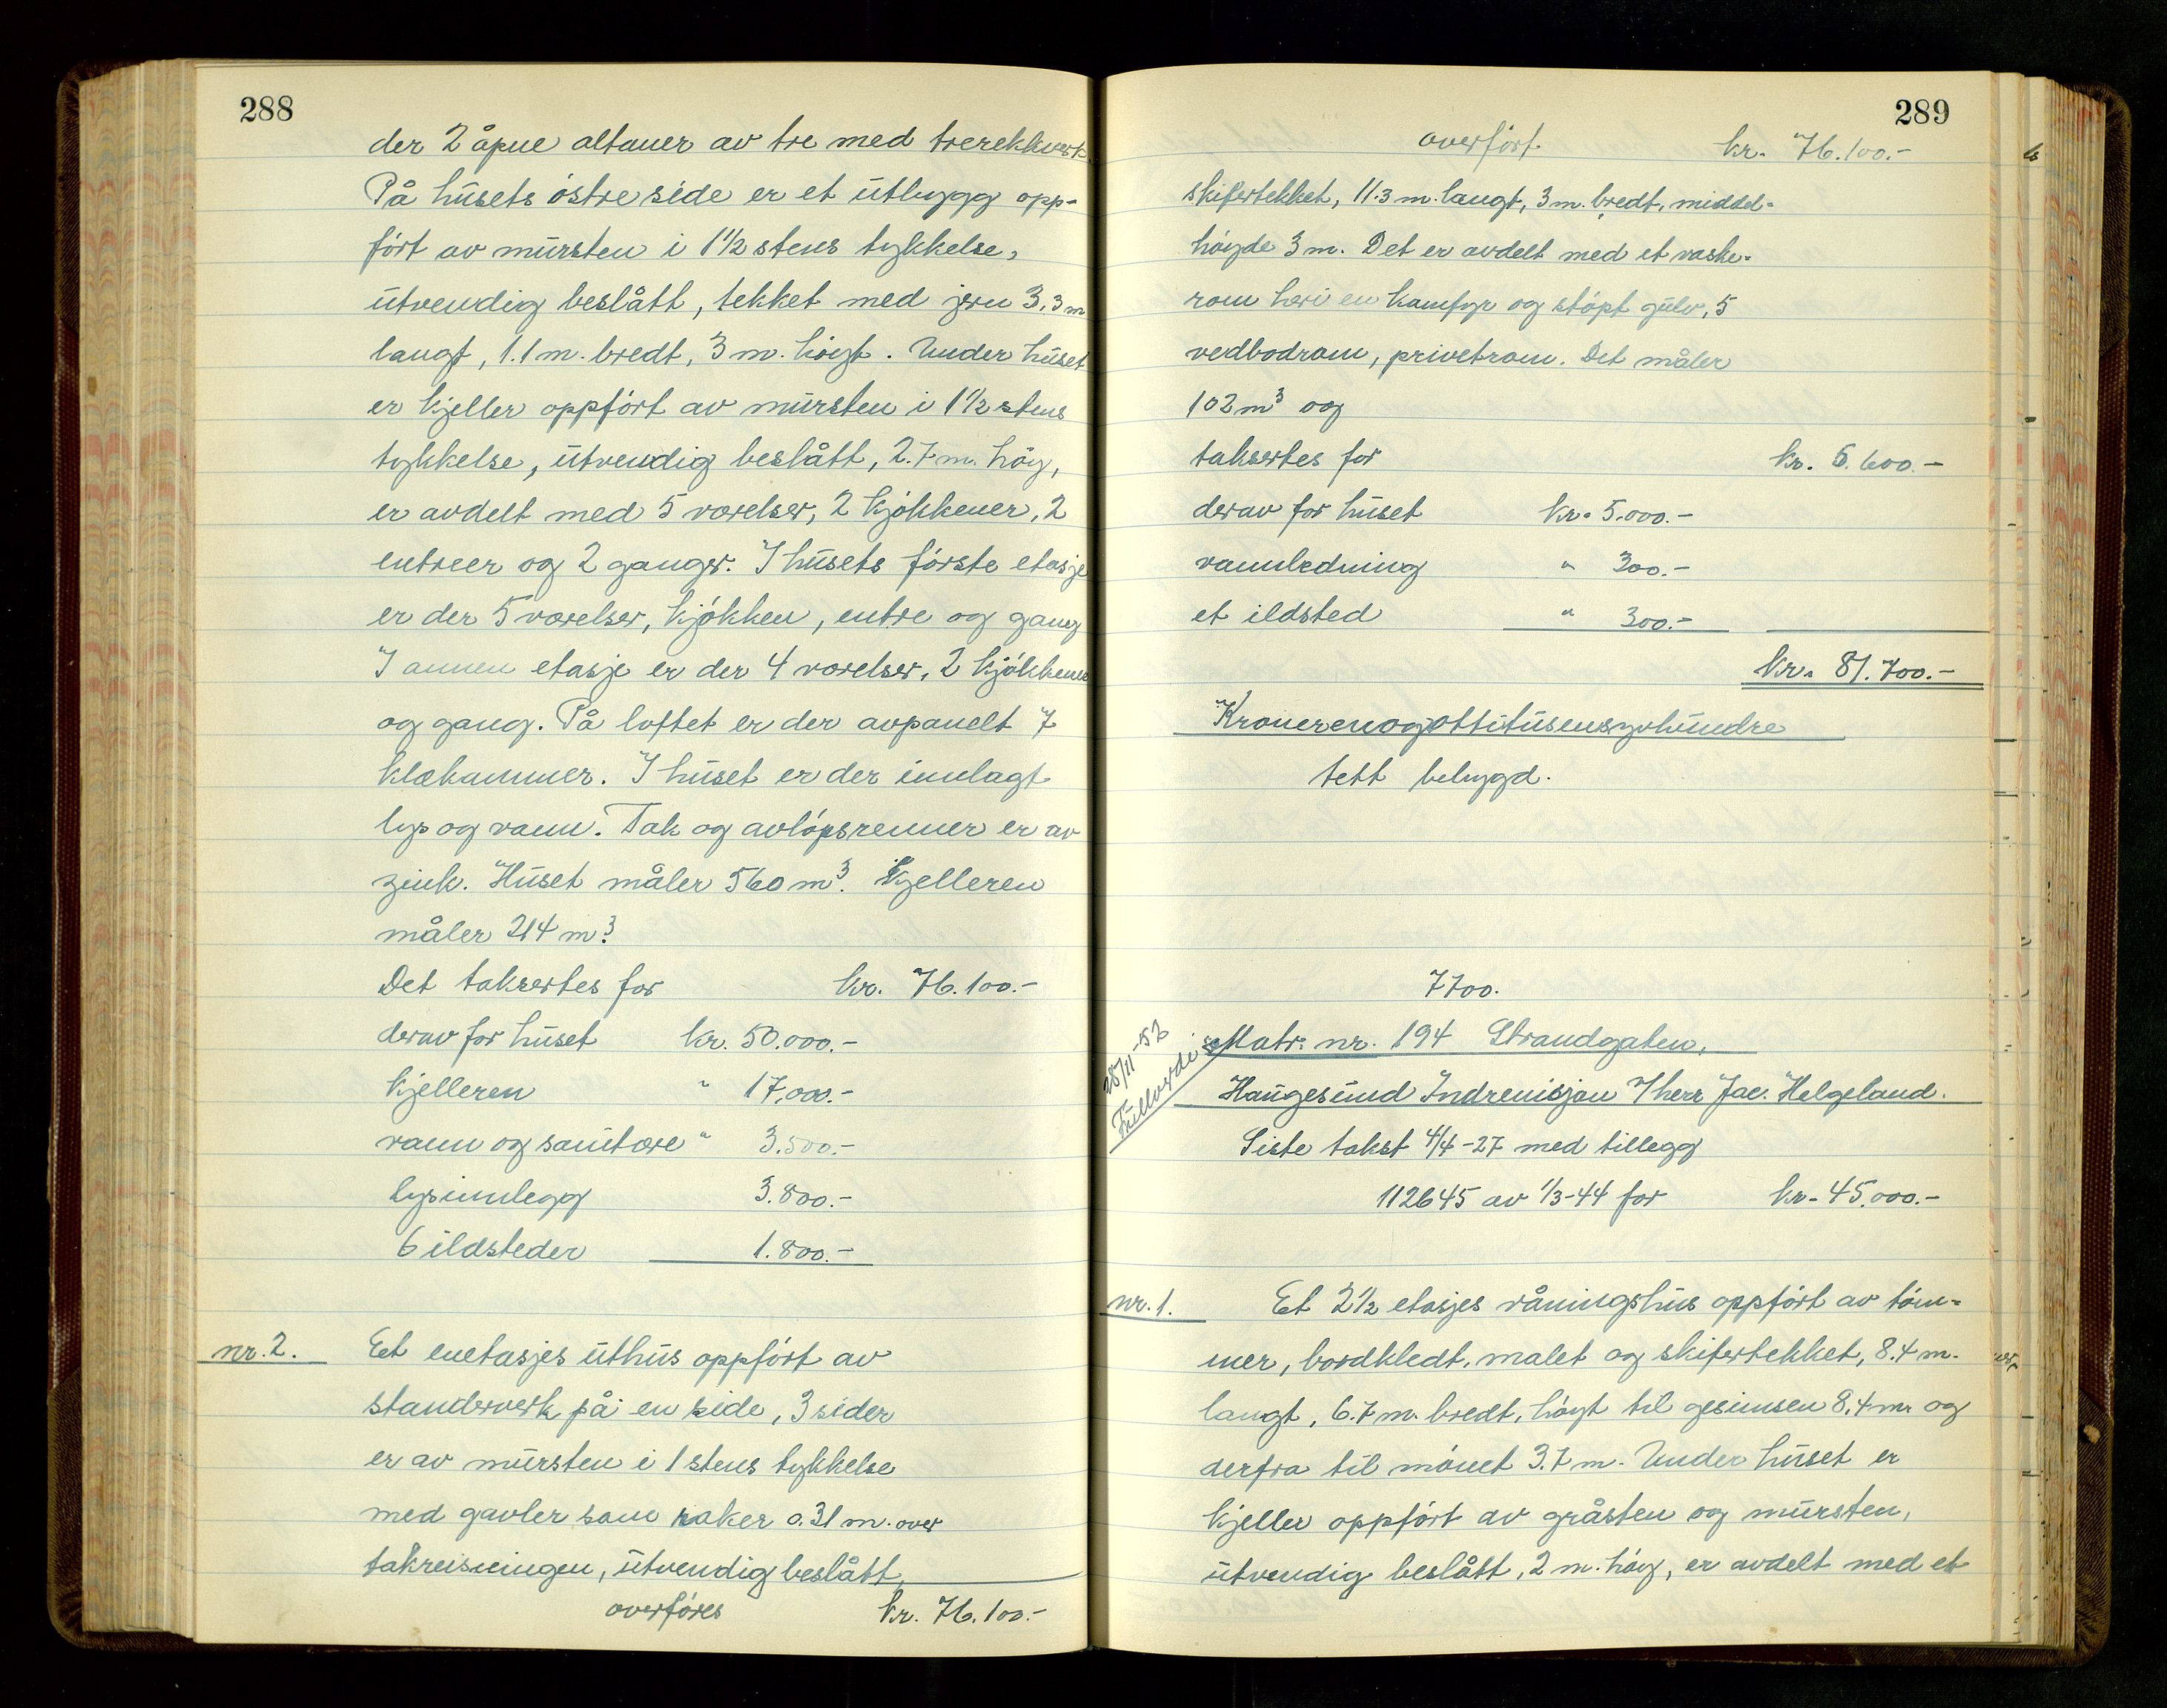 288
der 2 åpne altaner av tre med trerekkverk
På husets östre side er et utbygg opp-
fört av mursten i 1 1/2 stens tykkelse,
utvendig beslått, tekket med jern 3.3 m
langt, 1.1 m. bredt, 3 m. höyt. Under huset
er kjeller oppfört av mursten i 1 1/2 stens
tykkelse, utvendig beslått, 2.7 m. höy,
er avdelt med 5 værelser, 2 kjökkener, 2
entreer og 2 ganger. I husets förste etasje
er der 5 værelser, kjökken, entre og gang
I annen etasje er der 4 værelser, 2 kjökkener
og gang. På loftet er der avpanelt 7
klækammer. I huset er der innlagt
lys og vann. Tak og avlöpsrenner er av
zink. Huset måler 560 m³. Kjelleren
måler 214 m³
Det taksertes for kr. 76.100.-
derav for huset kr. 50.000.-
kjelleren " 17.000.-
vann og sanitære " 3.500.-
lysinnlegg 3.800.-
6 ildsteder 1.800.-
nr. 2. Eet enetasjes uthus oppfört av
standerverk på en side, 3 sider
er av mursten i 1 stens tykkelse
med gavler som raker 0.31 m. over
takreisningen, utvendig beslått,
overföres kr. 76.100.-
289
overfört. kr. 76.100.-
skifertekket, 11.3 m. langt, 3 m. bredt, middel-
höyde 3 m. Det er avdelt med et vaske-
rom heri en kamfyr og stöpt gulv, 5
vedbodrom, privetrom. Det måler
102 m³ og
taksertes for kr. 5.600.-
derav for huset kr. 5.000.-
vannledning " 300.-
et ildsted " 300.-
kr. 81.700.-
Kronerenogottitusensyvhundre
tett bebygd.
7700.
28/11-52
Fullverdi
Matr. nr. 194 Strandgaten,
Haugesund Indremisjon v/herr Jac. Helgeland.
Siste takst 4/4-27 med tillegg
112645 av 1/3-44 for kr. 45.000.-
nr. 1. Et 2 1/2 etasjes våningshus oppfört av töm-
mer, bordkledt, malet og skifertekket, 8.4 m.
langt, 6.7 m. bredt, höyt til gesimsen 8.4 m. og
derfra til mönet 3.7 m. Under huset er
kjeller oppfört av gråsten og mursten,
utvendig beslått, 2 m. höy, er avdelt med et